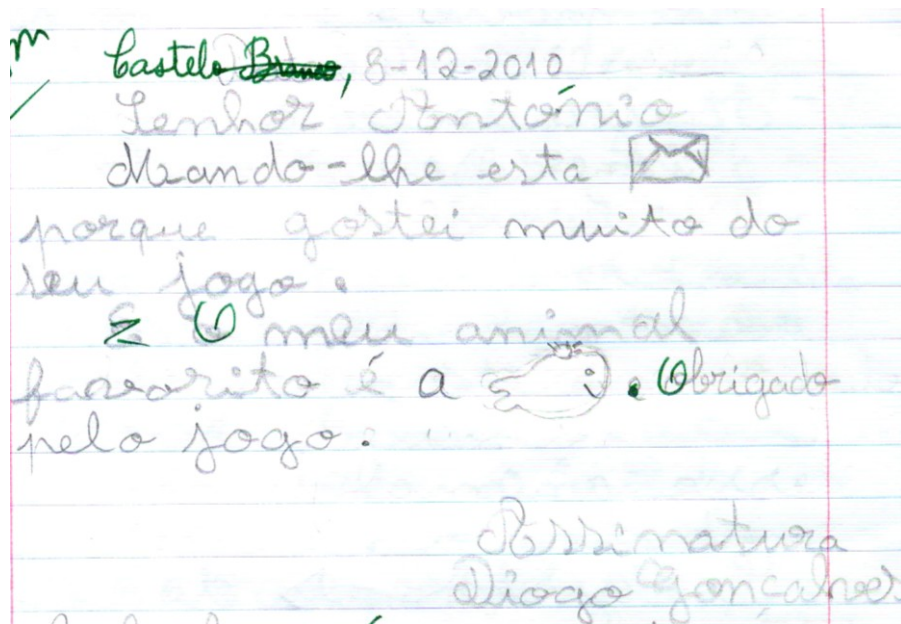 Castelo Branco, 8-12-2010
Senhor António
Mando-lhe esta
porque gostei muito do
seu jogo.
E O meu animal
favorito é a . Obrigado
pelo jogo.
Assinatura
Diogo Gonçalves